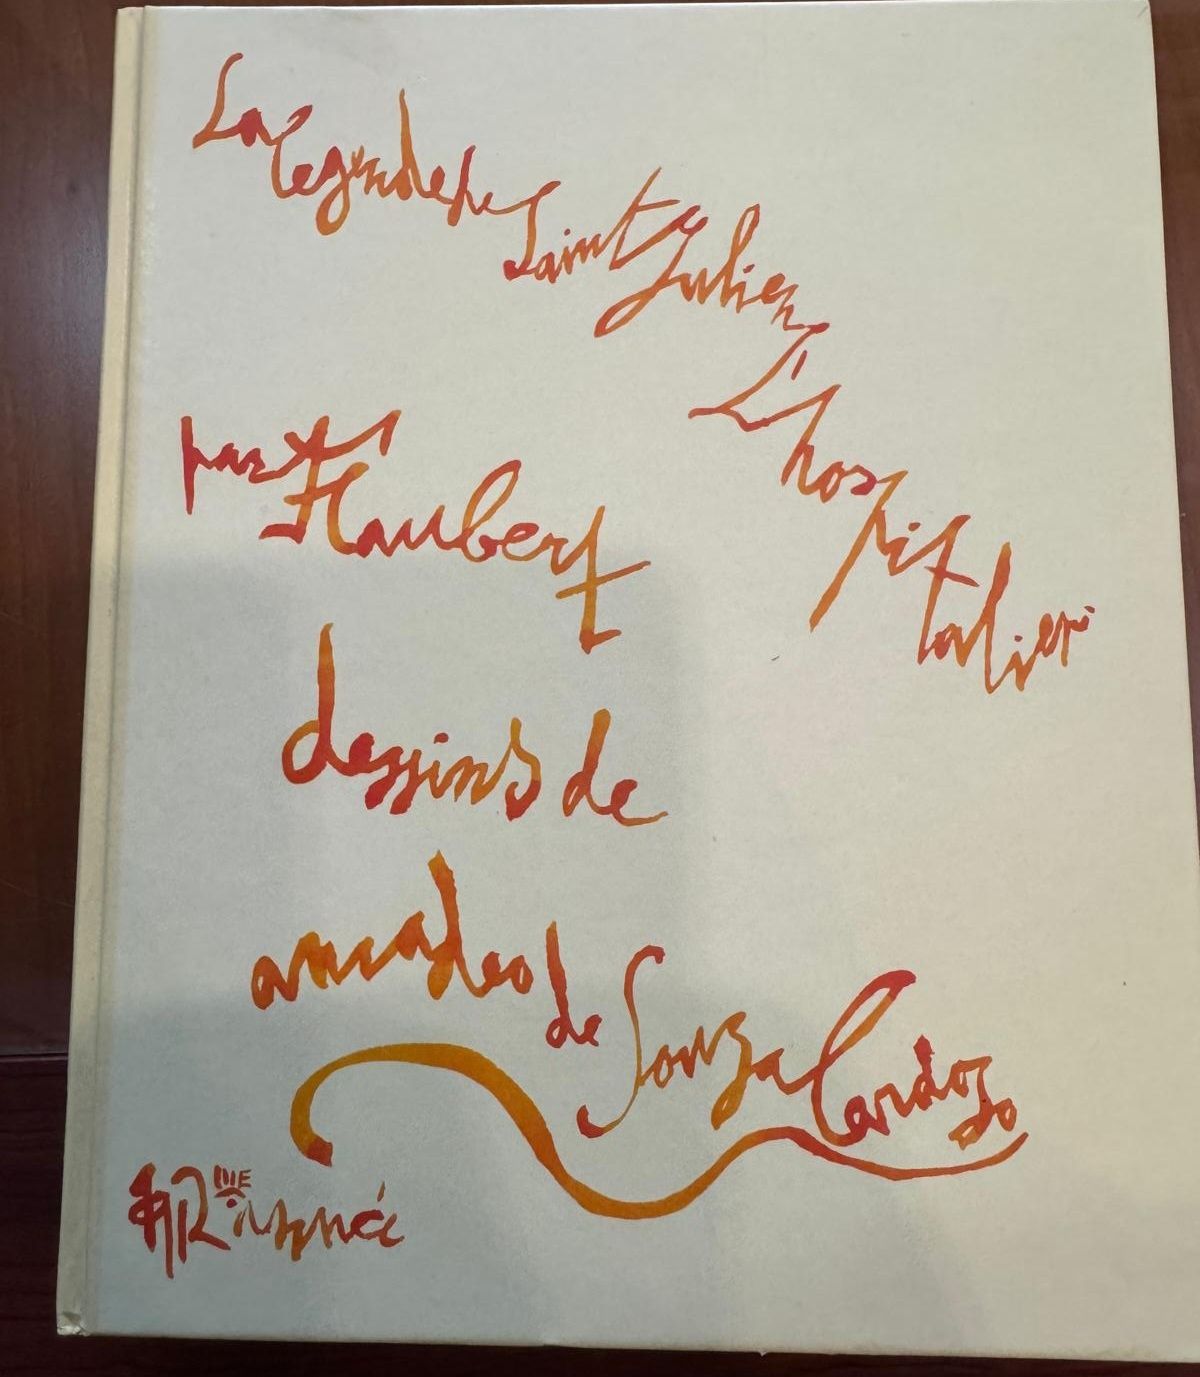 La legende de Saint Julien
L'hospitalier
par Flaubert
dessins de
amadeo de Souza Cardozo